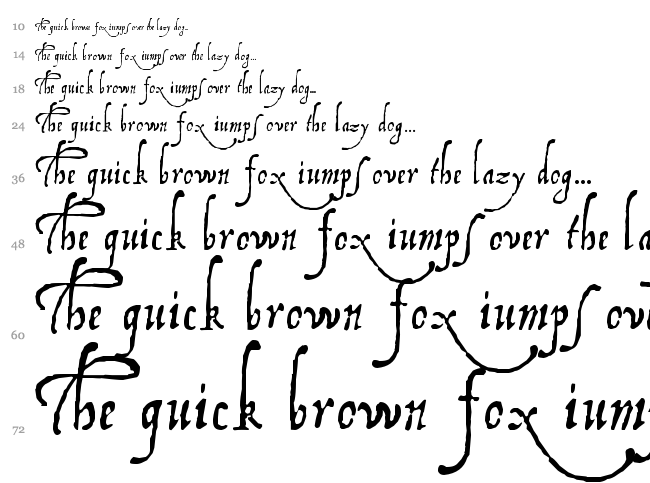 10 The quick brown fox iumpſ over the lazy dog...
14 The quick brown fox iumpſ over the lazy dog...
18 The quick brown fox iumpſ over the lazy dog...
24 The quick brown fox iumpſ over the lazy dog...
36 The quick brown fox iumpſ over the lazy dog...
48 The quick brown fox iumpſ over the la
60 The quick brown fox iumpſ ov
72 The quick brown fox ium